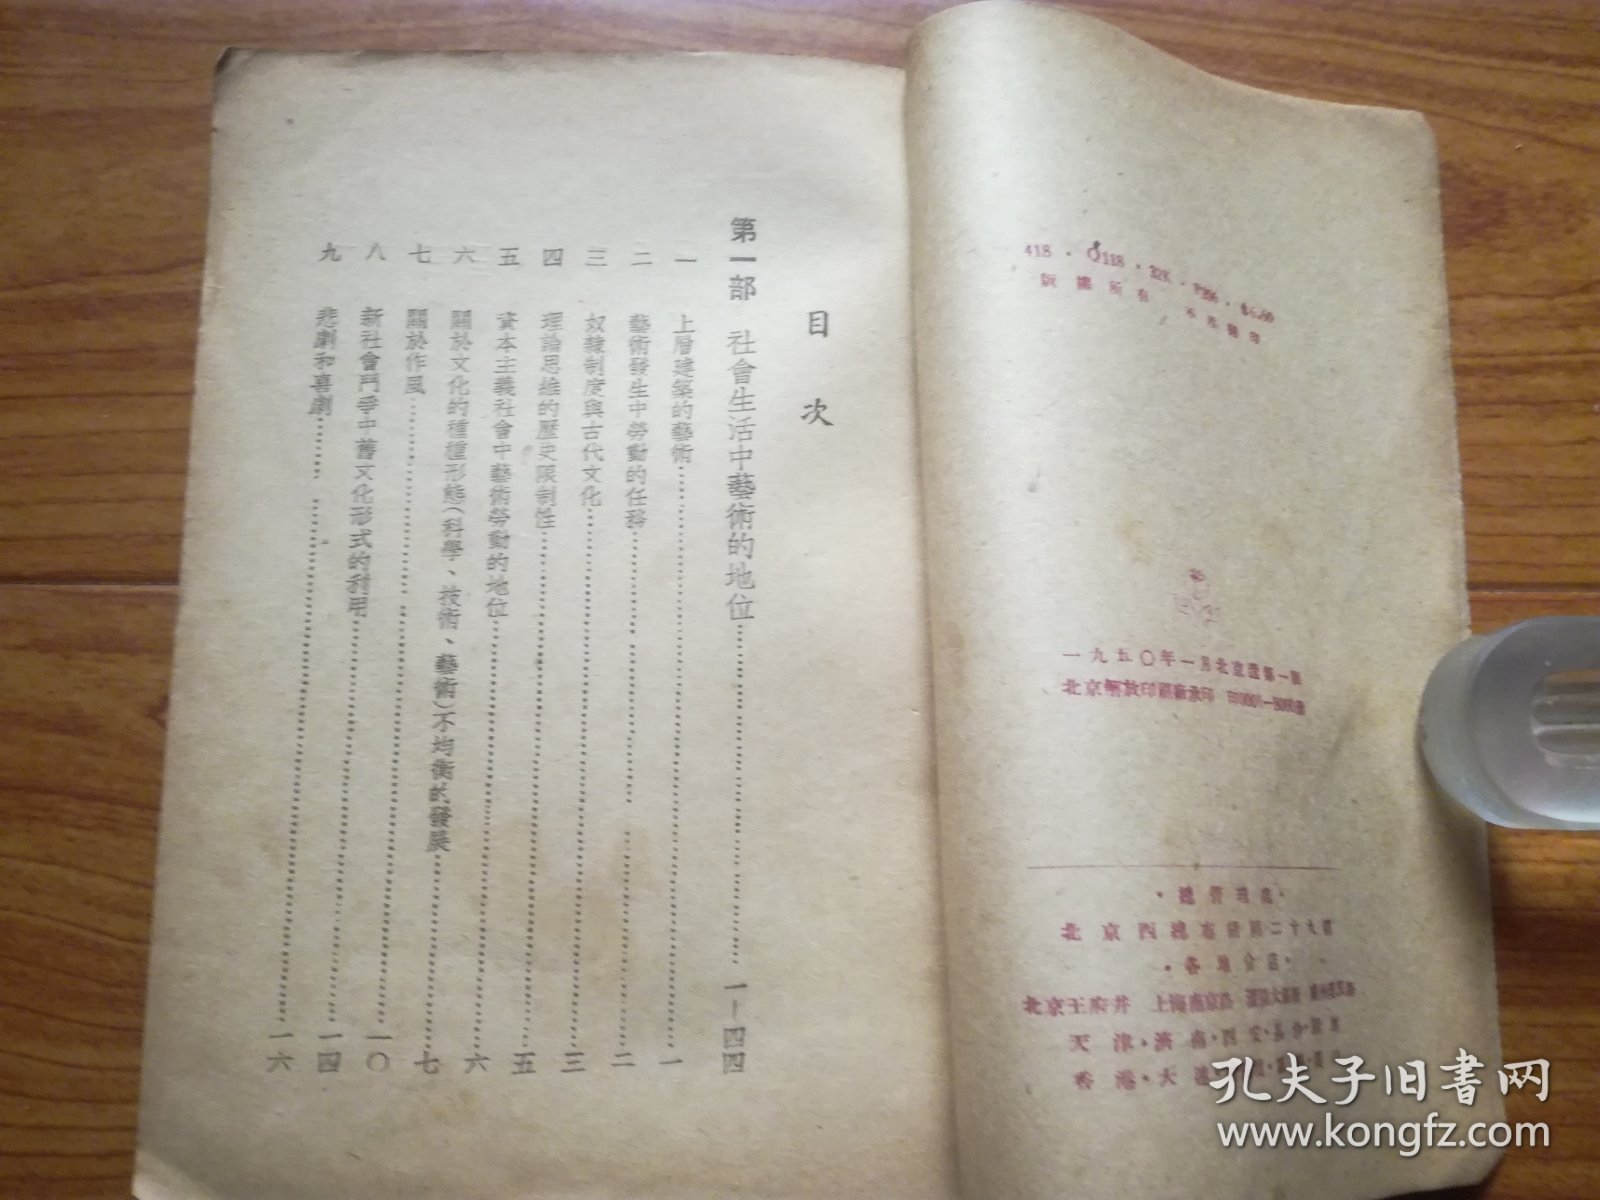 目次
第一部 社會生活中藝術的地位 一—四四
一 上層建築的藝術 一
二 藝術發生中勞動的任務 二
三 奴隸制度與古代文化 三
四 理論思維的歷史限制性 五
五 資本主義社會中藝術勞動的地位 六
六 關於文化的種種形態(科學、技術、藝術)不均衡的發展 七
七 關於作風 一〇
八 新社會鬥爭中舊文化形式的利用 一四
九 悲劇和喜劇 一六
418 · Q118 · 32K · P206 ·
版權所有 不准翻印
一九五〇年一月北京造第一版
北京
·總管理處·
北京西總布胡同二十九號
·各地分店·
北京王府井 上海南京路
天津·濟南·西安·長沙
香港·大連
孔夫子旧書网
www.kongfz.com